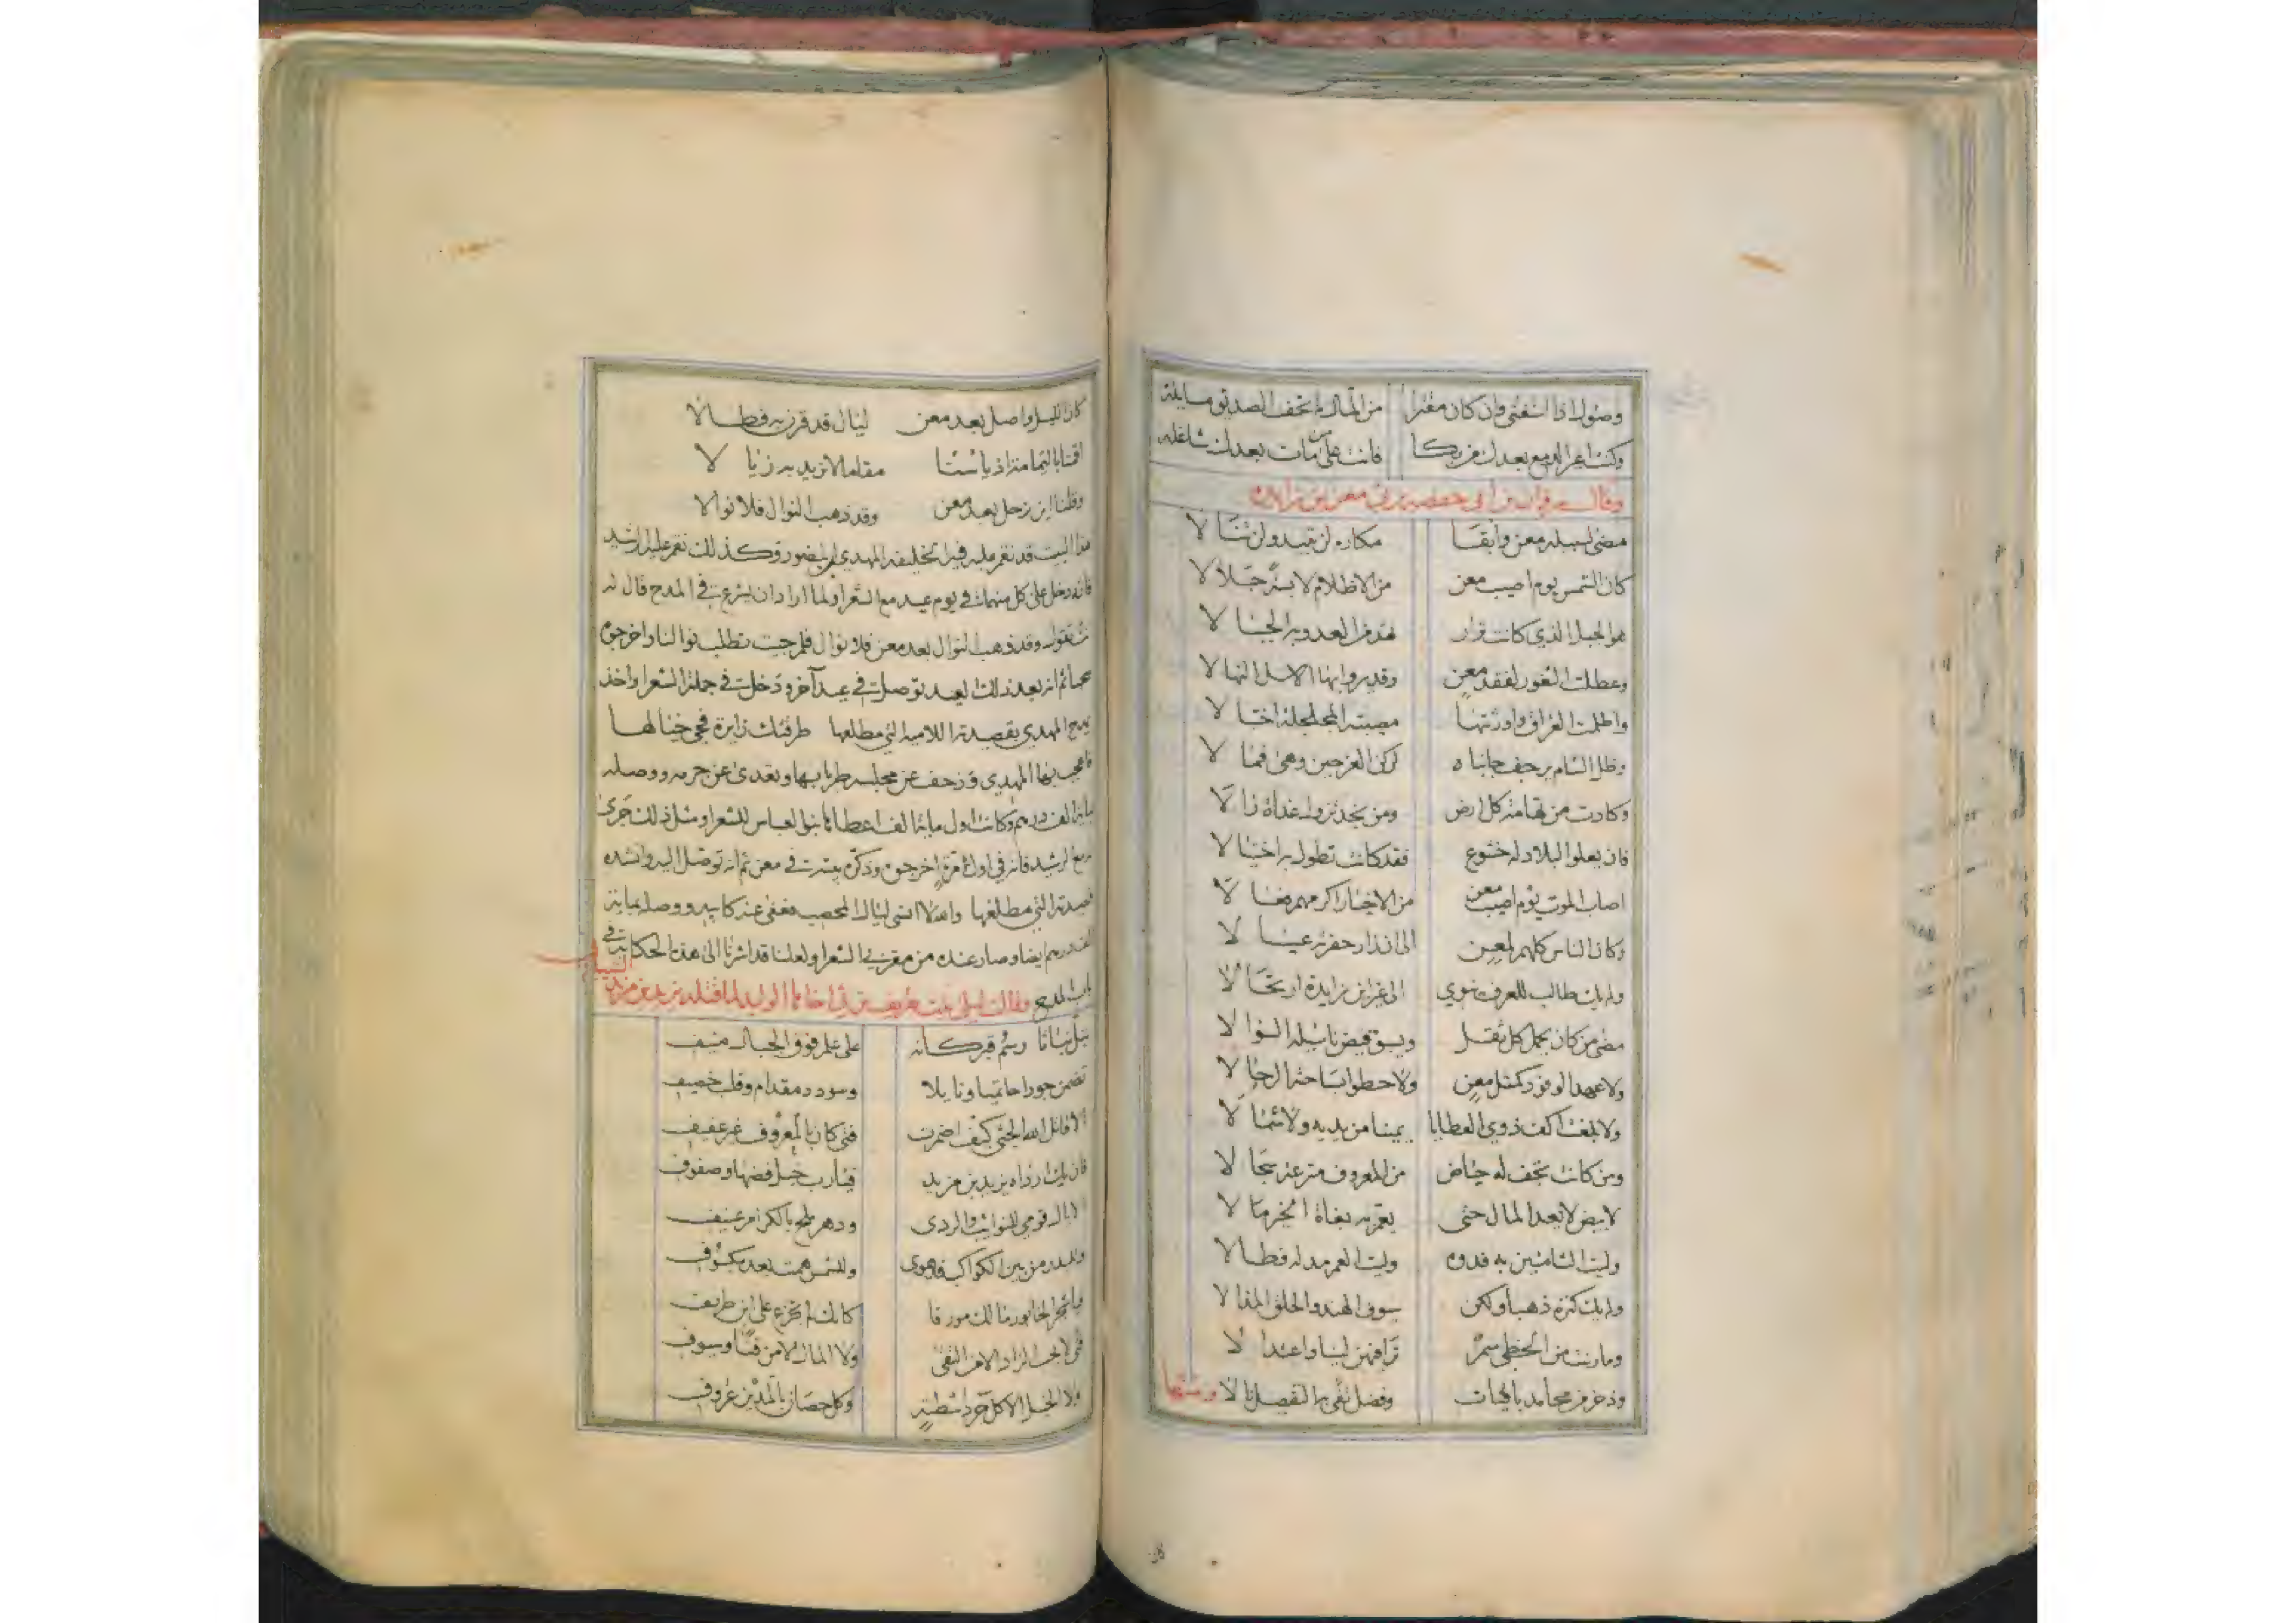 وصول اذا استغنى وان كان مقترا من المال لم تخف الصديق مسايله
وكنت اعير الدمع بعدك من بكا فانت على من مات بعدك شاغله
وقال مروان بن ابي حفصه يرثي معن بن زايده
مضى لسبيله معن وابقا مكارم لن تبيد ولن تنالا
كان الشمس يوم اصيب معن من الاظلام ملابسة جلالا
هو الجبل الذي كانت نزار تهد من العدو به الجبالا
وعطلت الثغور لفقد معن وقد يروي بها الاسل النهالا
واظلمت العراق واورثتها مصيبته المجللة اختلالا
وظل الشام يرجف جانباه لركن العز حين وهى فمالا
وكادت من تهامة كل ارض ومن نجد تزول غداة زالا
فان يعلوا البلاد له خشوع فقد كانت تطول به اختيالا
اصاب الموت يوم اصيب معن من الاخيار اكرمهم فعالا
وكان الناس كلهم لمعن الى ان زار حفرته عيالا
ولم يك طالب للعرف ينوي الى غير ابن زايدة ارتحالا
مضى من كان يحمل كل ثقل ويسبق فيض نايله السوالا
وما عمد الوفود كمثل معن ولا حطوا بساحته الرحالا
ولا بلغت اكف ذوي العطايا يمينا من يديه ولا شمالا
ومن كانت تخف له حياض من المعروف مترعة سجالا
لابيض لا يعد المال حتى يعم به بغاة الخير مالا
وليت الشامتين به فدوه وليت العمر مد له فطالا
ولم يك كنزه ذهبا ولكن سيوف الهند والحلق المذالا
ومارنة من الخطي سمر ترا فيهن لينا واعتدالا
وذخر من محامد باقيات وفضل تقى به التفضيل نالا ومنها
كان الليل واصل بعد معن ليال قد قرن به فطالا
اقمنا باليمامة اذ يئسنا مقاما لا نريد به زيالا
وقلنا اين نرحل بعد معن وقد ذهب النوال فلا نوالا
هذا البيت قد نقم عليه فيه الخليفه المهدي ابن المنصور وكذلك نقم عليه الرشيد
فانه دخل على كل منهما في يوم عيد مع الشعرا ولما اراد ان يشرع في المدح قال له
تقول وقد ذهب النوال بعد معن فلا نوال فلم جيت تطلب نوالنا اخرجوه
ثم انه بعد ذلك العيد توصل في عيد آخر ودخل في جملة الشعرا واخذ
يمدح المهدي بقصيدته اللاميه التي مطلعها طرقتك زايرة فحي خيالها
فاعجب بها المهدي وزحف عن مجلسه طربا بها وتعدى عن جرمه ووصله
بماية الف درهم وكانت اول ماية الف اعطاها بنو العباس للشعرا ومثل ذلك جرى
مع الرشيد فانه في اول مرة اخرجوه وذكره بيته في معن ثم انه توصل اليه وانشده
قصيدته التي مطلعها واهلا انسى ليال المحصب فعفى عنه كابيه ووصله بماية
الف درهم ايضا وصار عنده من مقربي الشعرا ولعلنا قد اشرنا الى هذه الحكاية في
باب المديح وقالت ليلى بنت طريف ترثي اخاها الوليد لما قتله يزيد بن مزيد الشيباني
بتل نباتا رسم قبر كانه على علم فوق الجبال منيف
تضمن جودا حاتميا ونايلا وسودد مقدام وقلب خصيف
الا قاتل الله الجثى كيف اضمرت فتى كان بالمعروف غير عفيف
فان يك ارداه يزيد بن مزيد فيا رب خيل فضها وصفوف
الا يال قومي للنوائب والردى ودهر ملح بالكرام عنيف
وللبدر من بين الكواكب قد هوى وللشمس همت بعده بكسوف
ايا شجر الخابور مالك مورقا كانك لم تجزع على ابن طريف
فتى لا يحب الزاد الا من التقى ولا المال الا من قنا وسيوف
ولا الخيل الا كل جرداء شطبة وكل حصان باليدين غروف